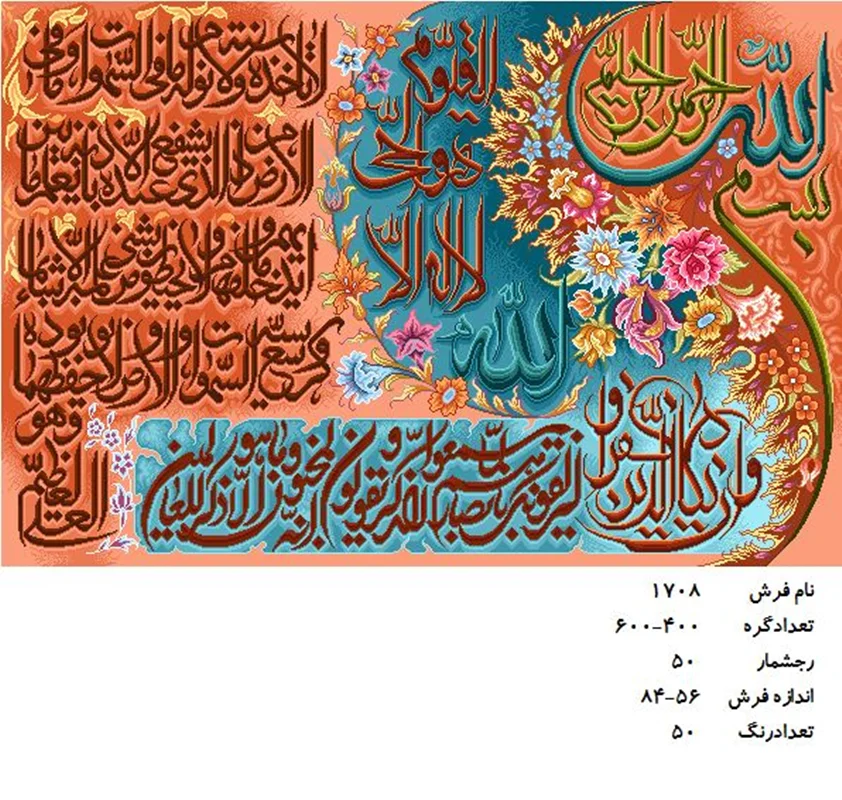 بسم الله الرحمن الرحیم
الله
لا اله الا
هو الحی
القیوم
لا تاخذه سنة ولا نوم له ما فی السموات وما فی
الارض من ذا الذی یشفع عنده الا باذنه یعلم ما بین
ایدیهم وما خلفهم ولا یحیطون بشیء من علمه الا بما شاء
وسع کرسیه السموات والارض ولا یوده حفظهما
وهو
العلی العظیم
وان یکاد الذین کفروا
لیزلقونک بابصارهم لما سمعوا الذکر ویقولون انه لمجنون وما هو الا ذکر للعالمین
نام فرش ۱۷۰۸
تعدادگره ۶۰۰-۴۰۰
رجشمار ۵۰
اندازه فرش ۸۴-۵۶
تعدادرنگ ۵۰